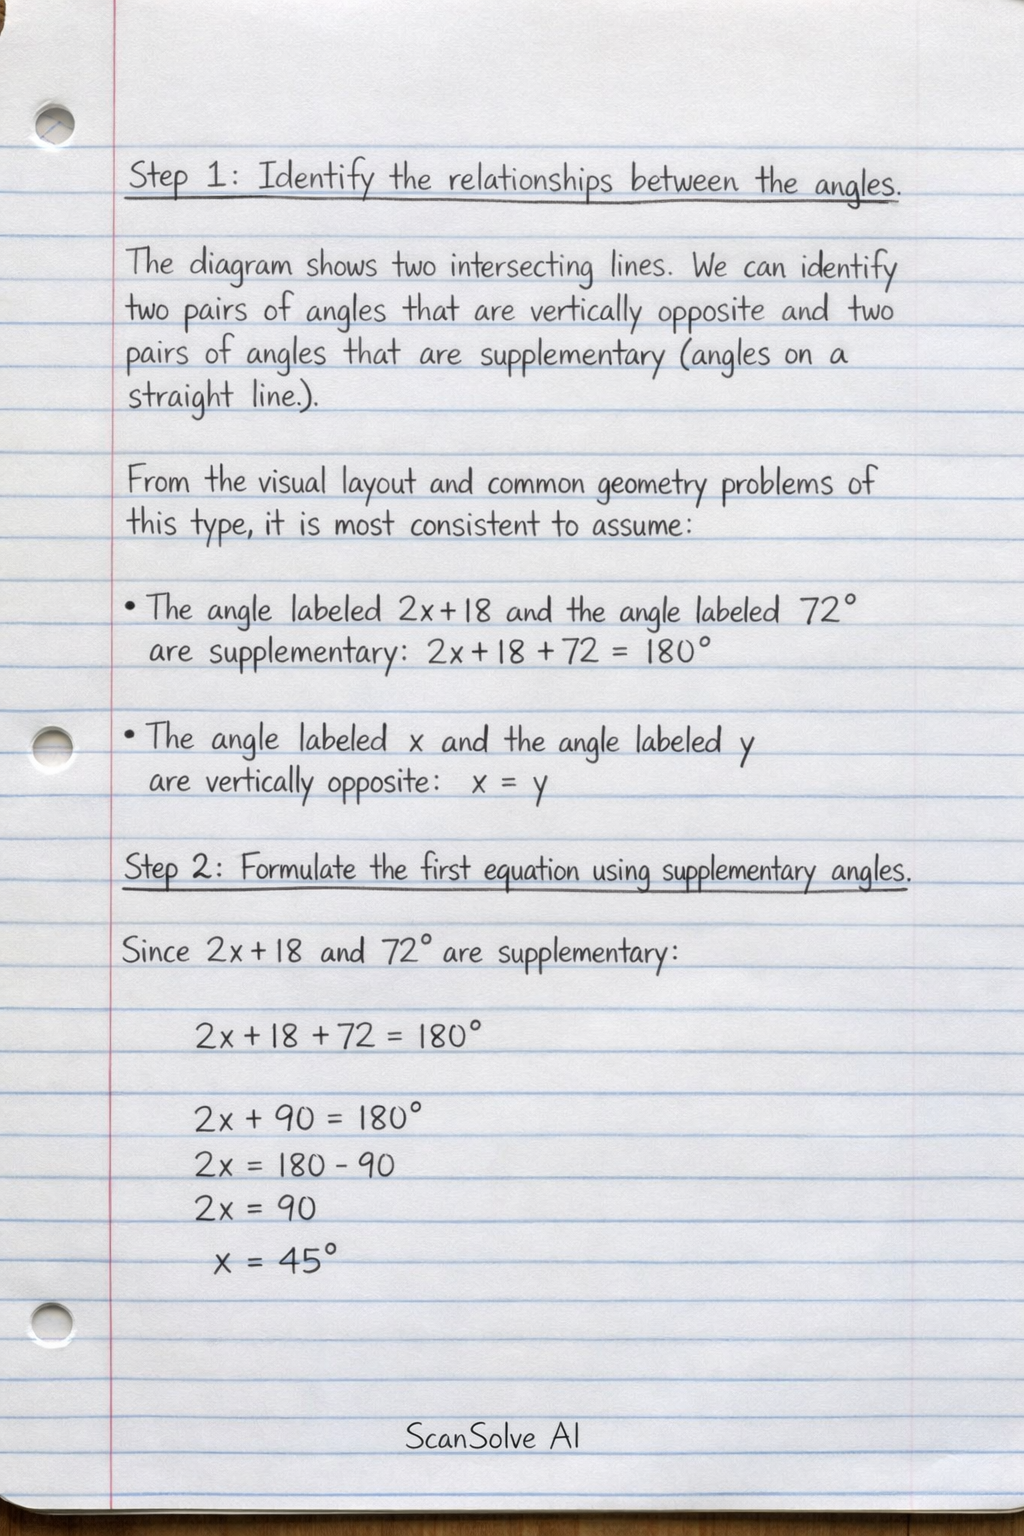 Step 1: Identify the relationships between the angles.
The diagram shows two intersecting lines. We can identify
two pairs of angles that are vertically opposite and two
pairs of angles that are supplementary (angles on a
straight line.).
From the visual layout and common geometry problems of
this type, it is most consistent to assume:
• The angle labeled 2x+18 and the angle labeled 72°
are supplementary: 2x+18+72 = 180°
• The angle labeled x and the angle labeled y
are vertically opposite: x = y
Step 2: Formulate the first equation using supplementary angles.
Since 2x+18 and 72° are supplementary:
2x+18+72 = 180°
2x + 90 = 180°
2x = 180 - 90
2x = 90
x = 45°
ScanSolve AI